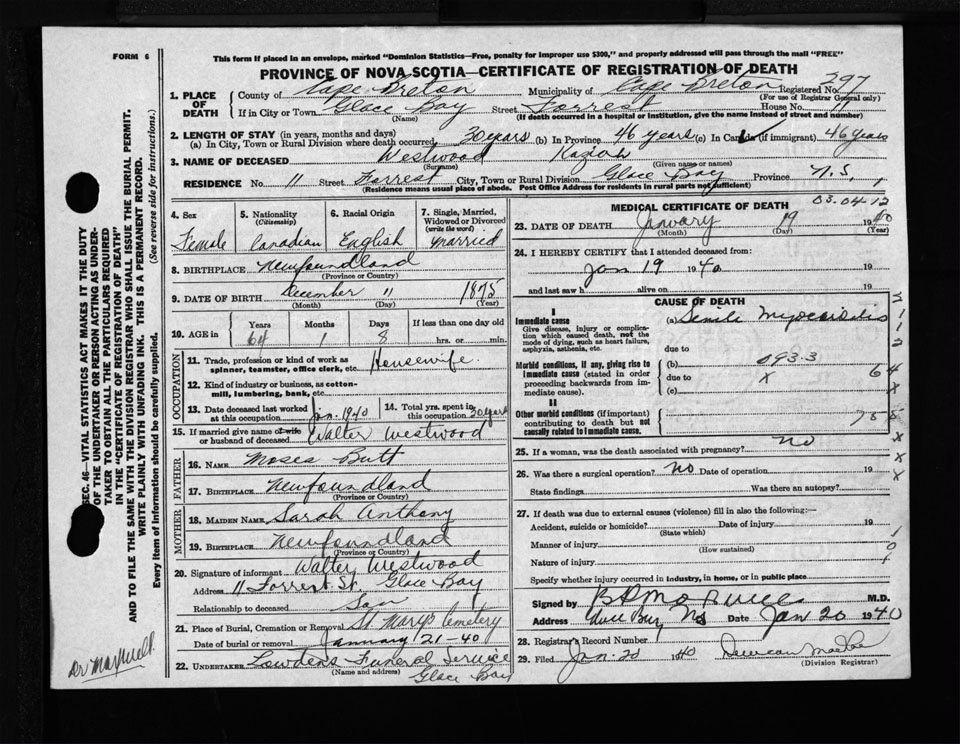 FORM 6
This form if placed in an envelope, marked "Dominion Statistics—Free, penalty for improper use $300," and properly addressed will pass through the mail "FREE"
PROVINCE OF NOVA SCOTIA—CERTIFICATE OF REGISTRATION OF DEATH
SEC. 46—VITAL STATISTICS ACT MAKES IT THE DUTY
OF THE UNDERTAKER OR PERSON ACTING AS UNDER-
TAKER TO OBTAIN ALL THE PARTICULARS REQUIRED
IN THE "CERTIFICATE OF REGISTRATION OF DEATH"
AND TO FILE THE SAME WITH THE DIVISION REGISTRAR WHO SHALL ISSUE THE BURIAL PERMIT.
WRITE PLAINLY WITH UNFADING INK. THIS IS A PERMANENT RECORD.
Every item of information should be carefully supplied. (See reverse side for instructions.)
Dr Maxwell.
1. PLACE OF DEATH
County of Cape Breton Municipality of Cape Breton Registered No. 297
(For use of Registrar General only)
If in City or Town Glace Bay Street Forrest House No. 11
(Name) (If death occurred in a hospital or institution, give the name instead of street and number)
2. LENGTH OF STAY (in years, months and days)
(a) In City, Town or Rural Division where death occurred 30 years (b) In Province 46 years (c) In Canada (if immigrant) 46 years
3. NAME OF DECEASED Westwood Keziah
(Surname) (Given name or names)
RESIDENCE No. 11 Street Forrest City, Town or Rural Division Glace Bay Province N.S.
(Residence means usual place of abode. Post Office Address for residents in rural parts not sufficient)
4. Sex Female
5. Nationality (Citizenship) Canadian
6. Racial Origin English
7. Single, Married, Widowed or Divorced (write the word) married
8. BIRTHPLACE Newfoundland
(Province or Country)
9. DATE OF BIRTH December 11 1875
(Month) (Day) (Year)
10. AGE in Years 64 Months 1 Days 8 If less than one day old hrs. or min.
OCCUPATION
11. Trade, profession or kind of work as spinner, teamster, office clerk, etc. Housewife.
12. Kind of industry or business, as cotton-mill, lumbering, bank, etc.
13. Date deceased last worked at this occupation Jan. 1940
14. Total yrs. spent in this occupation 30 years
15. If married give name of wife or husband of deceased Walter Westwood
FATHER
16. NAME Moses Butt
17. BIRTHPLACE Newfoundland
(Province or Country)
MOTHER
18. MAIDEN NAME Sarah Anthony
19. BIRTHPLACE Newfoundland
(Province or Country)
20. Signature of informant Walter Westwood
Address 11 Forrest St. Glace Bay
Relationship to deceased Son
21. Place of Burial, Cremation or Removal St Mary's Cemetery
Date of burial or removal January 21-40
22. UNDERTAKER Lowden's Funeral Service
(Name and address) Glace Bay
MEDICAL CERTIFICATE OF DEATH
03.04.12
23. DATE OF DEATH January 19 1940
(Month) (Day) (Year)
24. I HEREBY CERTIFY that I attended deceased from:
Jan 19 1940 19
and last saw h alive on 19
CAUSE OF DEATH
I
Immediate cause (a) Senile Myocarditis
Give disease, injury or complication which caused death, not the mode of dying, such as heart failure, asphyxia, asthenia, etc.
due to
Morbid conditions, if any, giving rise to immediate cause (stated in order proceeding backwards from immediate cause).
(b) 093.3
due to x
(c)
II
Other morbid conditions (if important) contributing to death but not causally related to immediate cause.
64
25. If a woman, was the death associated with pregnancy? no
26. Was there a surgical operation? No Date of operation 19
State findings Was there an autopsy?
27. If death was due to external causes (violence) fill in also the following:—
Accident, suicide or homicide? Date of injury 19
(State which)
Manner of injury
(How sustained)
Nature of injury
Specify whether injury occurred in industry, in home, or in public place
Signed by M.D.
Address Glace Bay NS Date Jan 20 1940
28. Registrar's Record Number
29. Filed Jan. 20 1940
(Division Registrar)